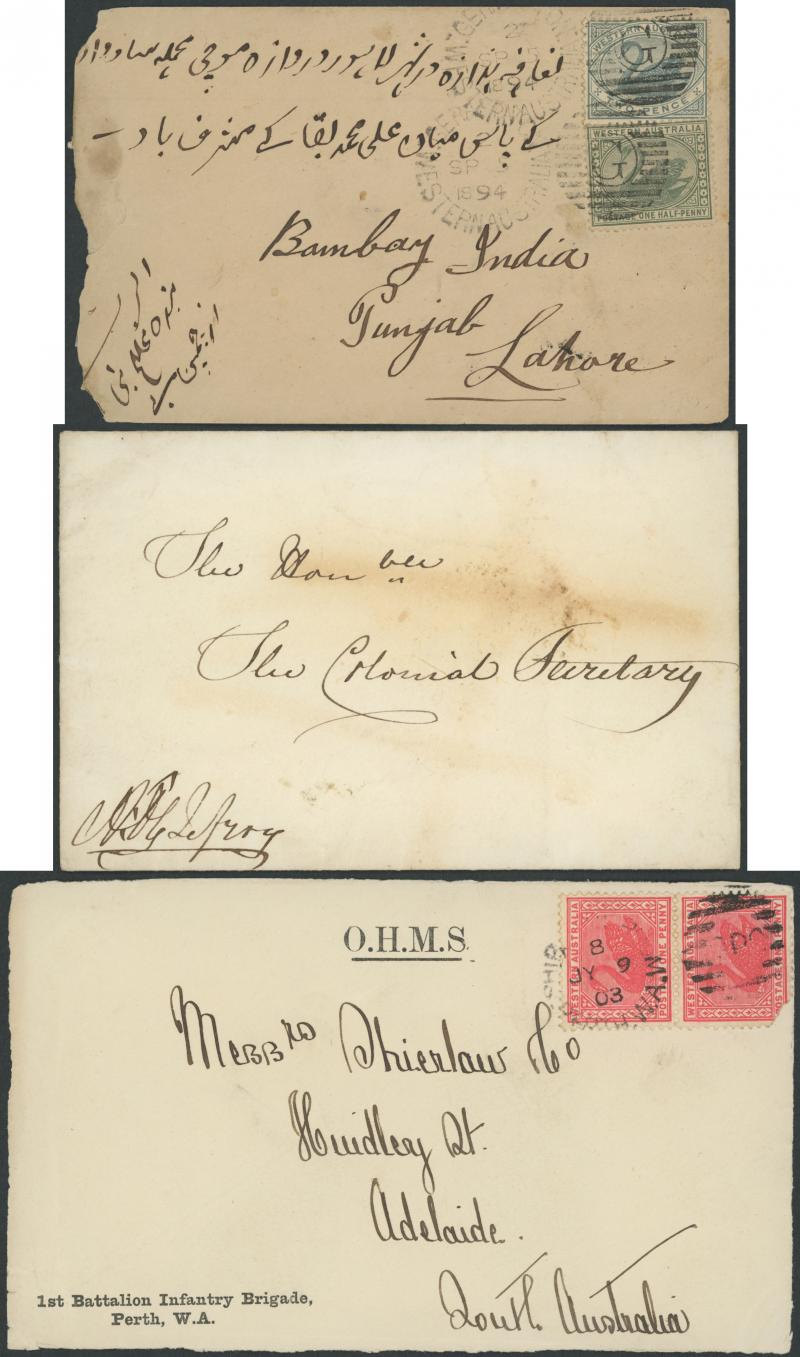 WESTERN AUSTRALIA
TWO PENCE
WESTERN AUSTRALIA
POSTAGE ONE HALF-PENNY
SP
1894
WESTERN AUSTRALIA
لفافہ ہذا در شہر لاہور دروازہ موچی محلہ
کے پاس میاں علی محمد بقا کے مشرف باد
Bombay India
Punjab
Lahore
The Honble
The Colonial Secretary
Lefroy
O.H.M.S.
WESTERN AUSTRALIA
POSTAGE ONE PENNY
8
JY 9
03
W.A.
Messrs Shierlaw & Co
Hindley St.
Adelaide.
South Australia
1st Battalion Infantry Brigade,
Perth, W.A.